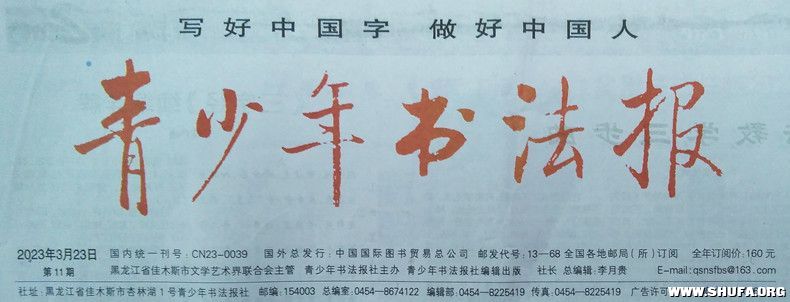 写好中国字 做好中国人
青少年书法报
2023年3月23日
第11期
国内统一刊号:CN23-0039 国外总发行:中国国际图书贸易总公司 邮发代号:13—68 全国各地邮局(所)订阅 全年订阅价:160元
黑龙江省佳木斯市文学艺术界联合会主管 青少年书法报社主办 青少年书法报社编辑出版 社长 总编辑:李月贵 E-mail:qsnsfbs@163.com
社址:黑龙江省佳木斯市杏林湖1号青少年书法报社 邮编:154003 总编室:0454—8674122 编辑部:0454—8225419 传真:0454—8225419 广告许可
WWW.SHUFA.ORG